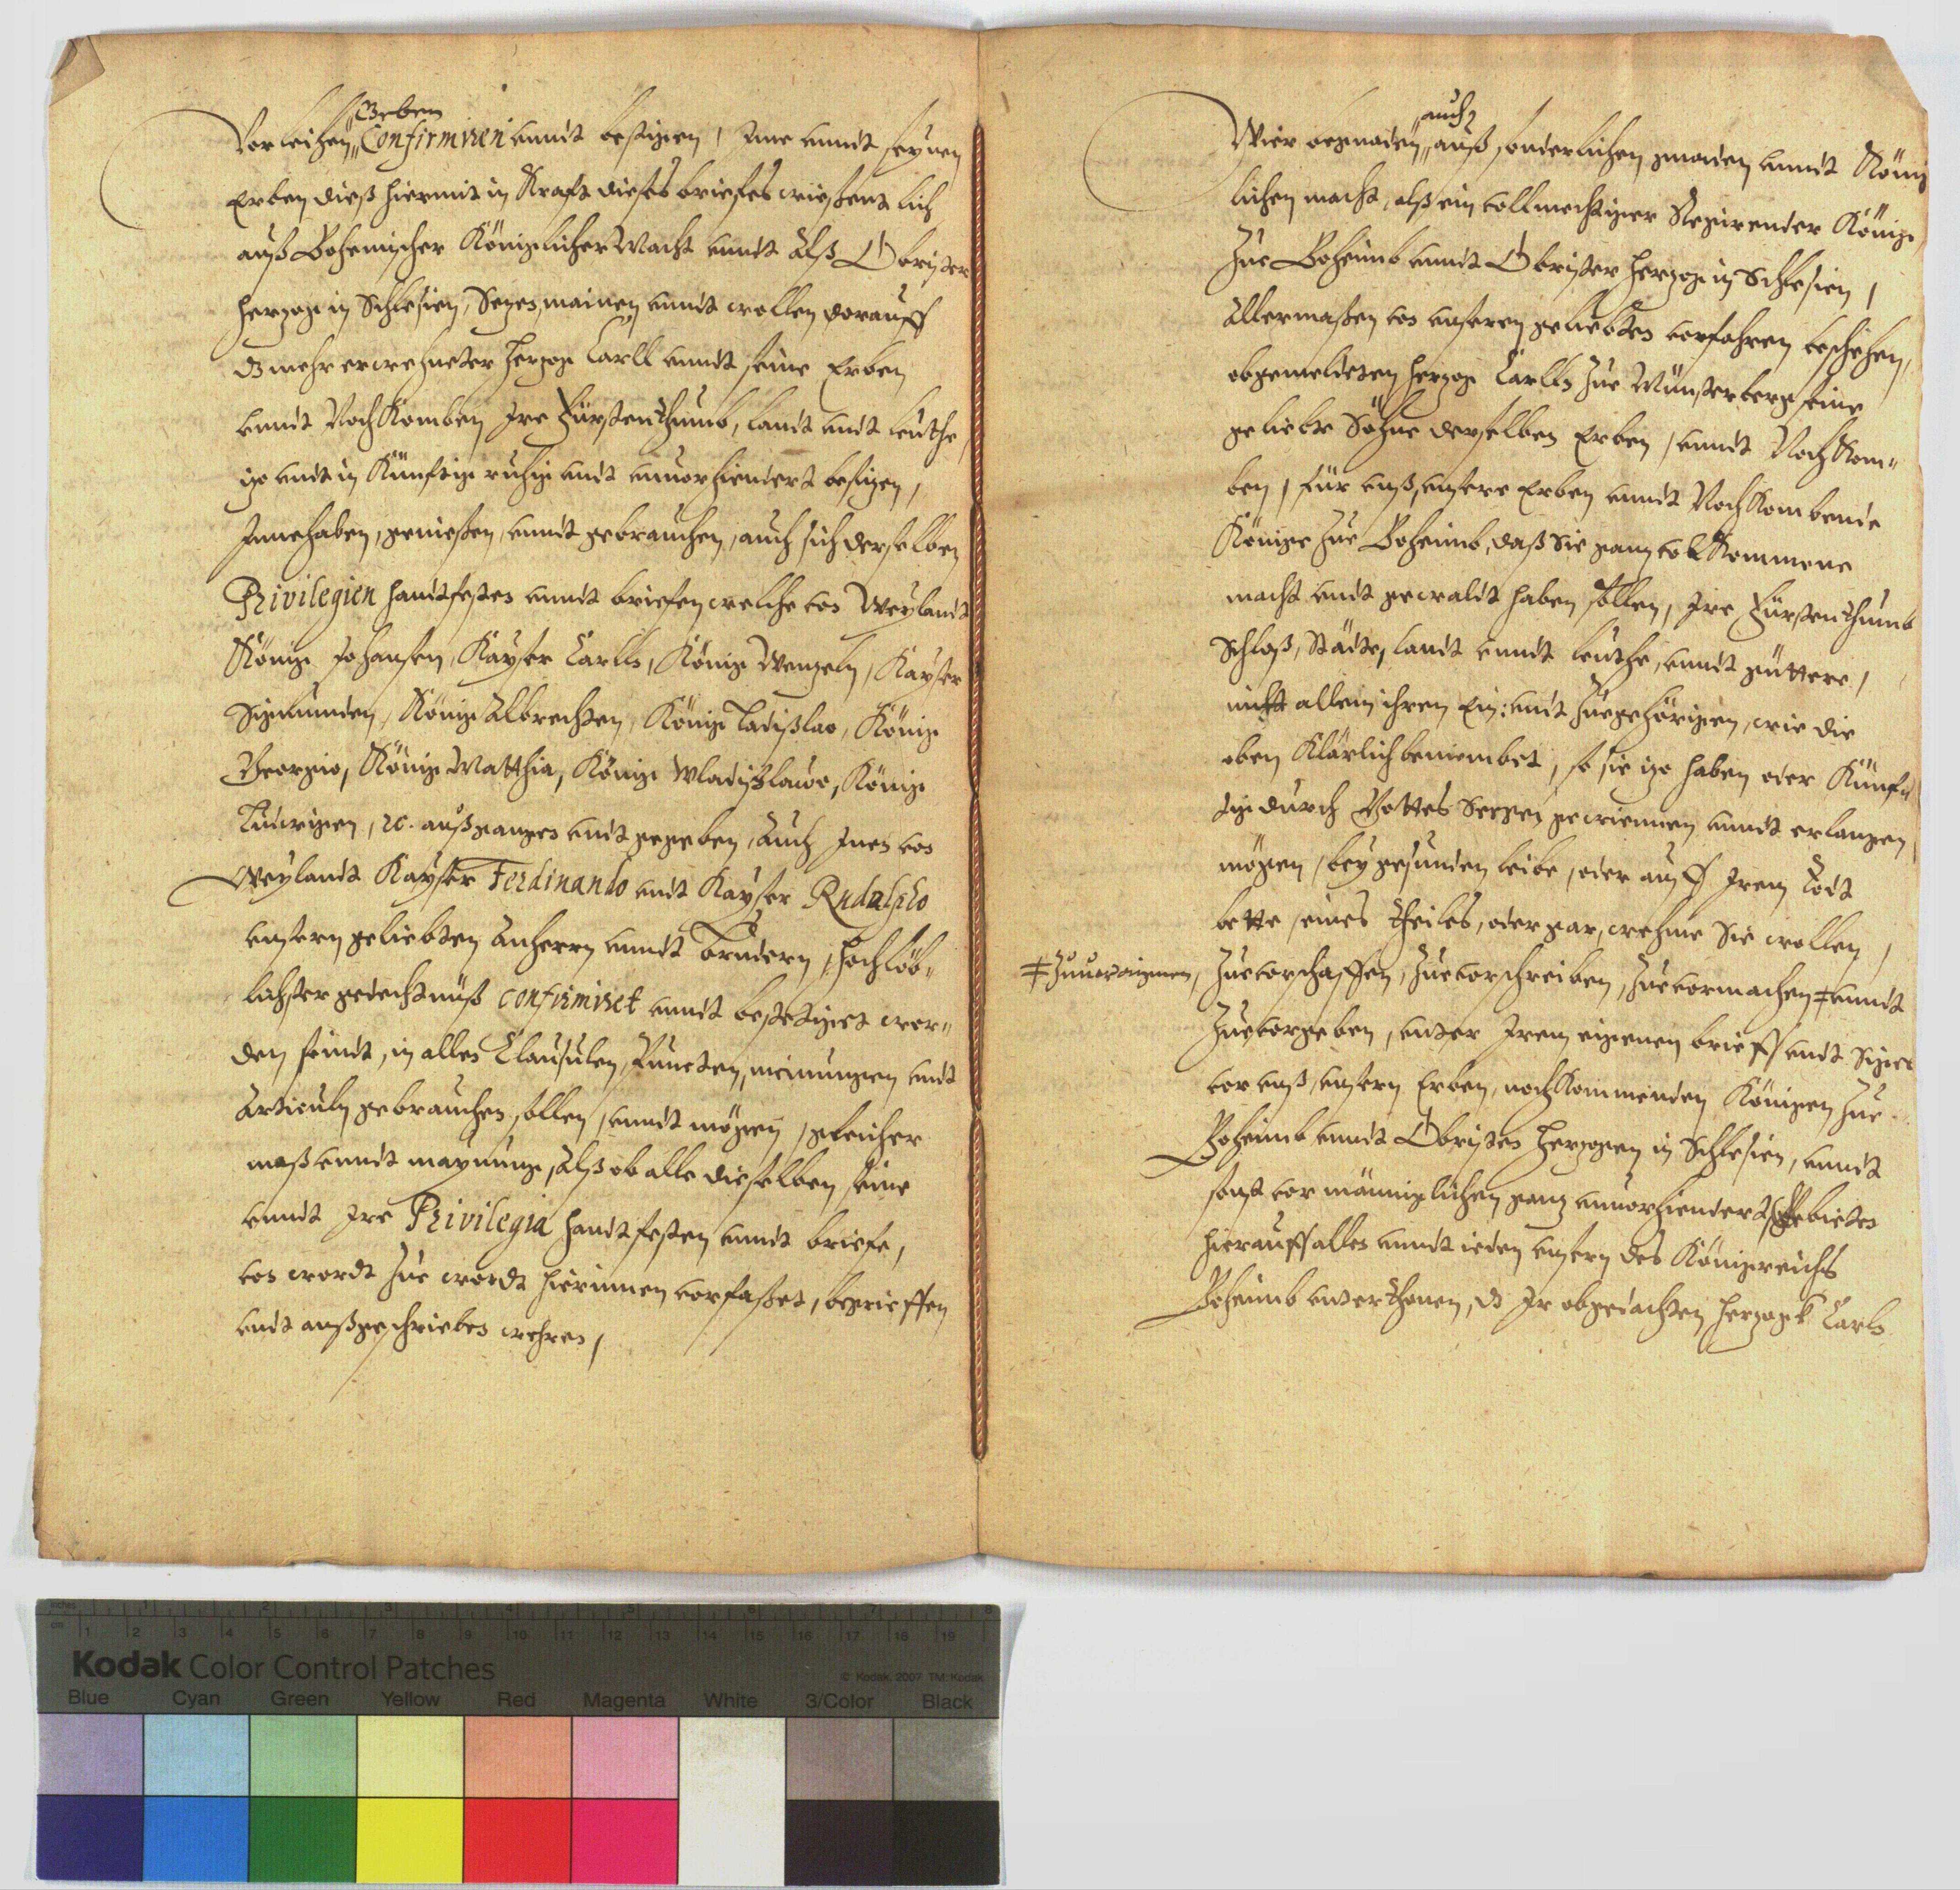 Geben
Vorleihen, Confirmiren unndt bestigen, Ime unndt seynen
Erben dieß hiermit in Kraft dieses briefes wießentlich
auß Bohemischer Königlicher Macht unndt Alß Obrister
Herzog in Schlesien, Sezen, mainen unndt wollen dorauff
dz mehr erwehneter Herzog Carll unndt seine Erben
unndt Noch Komben Ire Fürstenthumb, landt undt leuthe,
izo undt in Künftig ruhig undt unuorhiendert besizen,
Innehaben, genießen, unndt gebrauchen, auch sich derselben
Privilegien handtfesten unndt briefen welche von Weylandt
König Johansen, Kayser Carlln, König Wenzeln, Kayser
Sigmunden, König Albrechten, König Ladißlao, König
Georgio, König Matthia, König Wladißlawo, König
Ludwigen, ꝛc. außgangen undt gegeben, Auch Inen von
Weylandt Kayser Ferdinando undt Kayser Rudolpho
unsern geliebten Anherrn unndt Brudern, Hochlöb-
lichster gedechtnüß confirmiret unndt bestetiget wor-
den seindt, in allen Clausulen, Puncten, meinungen undt
Articuln gebrauchen sollen, unndt mögen, gleicher
maß unndt maynung, Alß ob alle dieselben seine
unndt Ire Privilegia handtfesten unndt briefe,
von wordt zue wordt hierinnen vorfaßet, begrieffen
undt außgeschrieben wehren,
auch
Wier begnaden, auß sonderlichen gnaden unndt König
lichen macht, alß ein vollmechtiger Regirender König
Zue Boheimb unndt Obrister Herzog in Schlesien,
Allermaßen von unseren geliebten vorfahren beschehen,
obgemeldeten Herzog Carlln zue Münsterberg seine
geliebte Söhne derselben Erben, unndt Noch Kom-
ben, für unß, unsere Erben unndt Noch Kombende
Könige zue Boheimb, daß Sie ganz vol Kommene
macht undt gewaldt haben sollen, Ire Fürstenthumb
Schloß, Städte, landt unndt leuthe, unndt güttere,
mitt allem ihren Ein: undt Zuegehörigen, wie die
oben Klärlich benembet, so sie izo haben oder Künf-
tig durch Gottes Seegen gewiennen unndt erlangen
mögen, bey gesunden leibe, oder auff Irem Todt
bette, eines theiles, oder gar, wehme Sie wollen,
Zue vorschaffen, Zue vorschreiben, Zue vormachen ǂ unndt
ǂ Zuuoreignen,
Zue vorgeben, unter Irem eigenen brieff undt Sigel
vor unß, unsern Erben, noch Kommenden Königen zue
Boheimb unndt Obristen Herzogen in Schlesien, unndt
sonst vor männiglichen ganz unuorhiendert, Gebieten
hierauff allen unndt ieden unsern des Königreichs
Boheimb unterthanen, dz Ir obgedachten Herzogk Carln
Kodak Color Control Patches
© Kodak, 2007 TM: Kodak
Blue Cyan Green Yellow Red Magenta White 3/Color Black